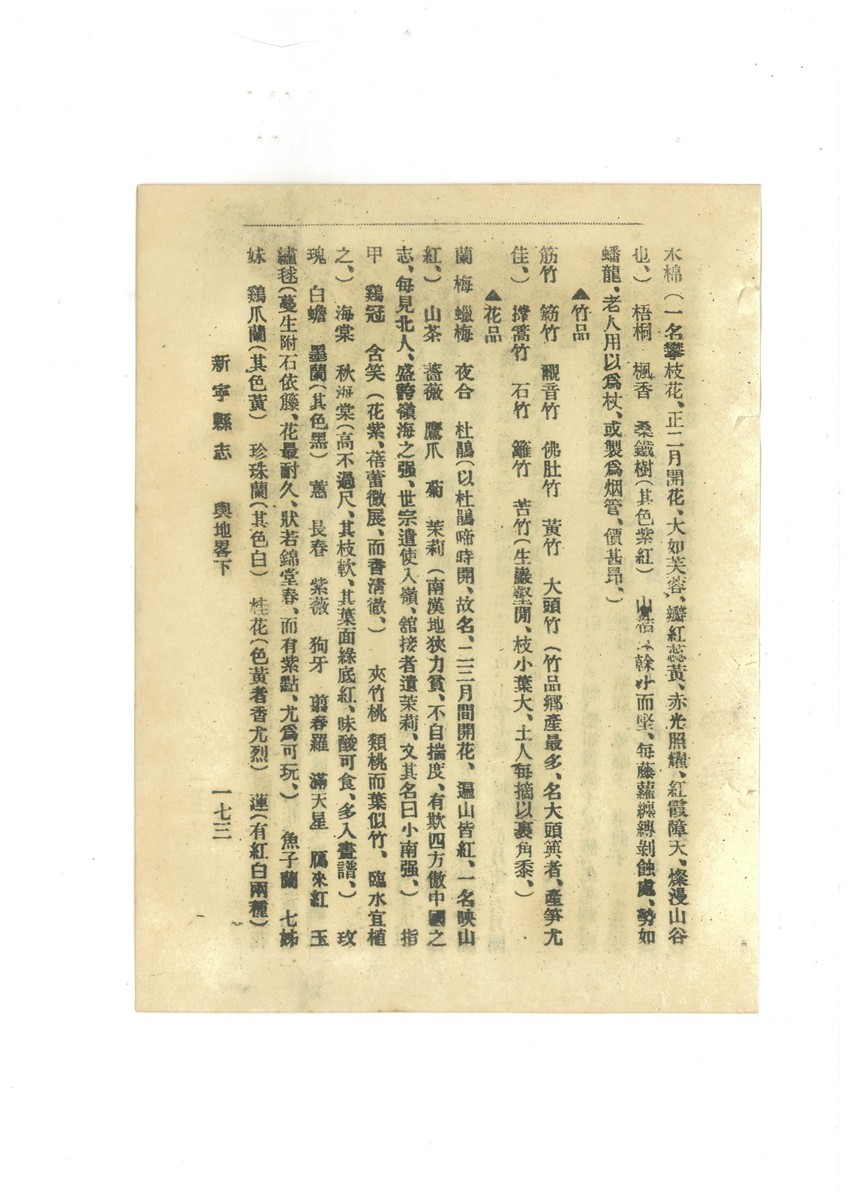 木棉(一名攀枝花、正二月開花、大如芙蓉、瓣紅蕊黃、赤光照耀、紅霞障天、燦漫山谷
也、) 梧桐 楓香 桑鐵樹(其色紫紅) 山 榦小而堅、每藤蘿纏縛剝蝕處、勢如
蟠龍、老人用以爲杖、或製爲烟管、價甚昂、)
▲竹品
筋竹 簕竹 觀音竹 佛肚竹 黃竹 大頭竹(竹品鄉產最多、名大頭典者、產筍尤
佳、) 撐篙竹 石竹 籬竹 苦竹(生巖壑間、枝小葉大、土人每摘以裹角黍、)
▲花品
蘭 梅 蠟梅 夜合 杜鵑(以杜鵑啼時開、故名、二三月間開花、遍山皆紅、一名映山
紅、) 山茶 薔薇 鷹爪 菊 茉莉(南漢地狹力貧、不自揣度、有欺四方傲中國之
志、每見北人、盛誇嶺海之强、世宗遣使入嶺、舘接者遺茉莉、文其名曰小南强、) 指
甲 鷄冠 含笑(花紫、蓓蕾微展、而香淸徹、) 夾竹桃 類桃而葉似竹、臨水宜植
之、) 海棠 秋海棠(高不過尺、其枝軟、其葉面綠底紅、味酸可食、多入畫譜、) 玫
瑰 白蟾 墨蘭(其色黑) 蕙 長春 紫薇 狗牙 剪春羅 滿天星 鴈來紅 玉
繡毬(蔓生附石依籐、花最耐久、狀若錦堂春、而有紫點、尤爲可玩、) 魚子蘭 七姊
妹 鷄爪蘭(其色黃) 珍珠蘭(其色白) 桂花(色黃者香尤烈) 蓮(有紅白兩種)
新寧縣志 輿地畧下 一七三